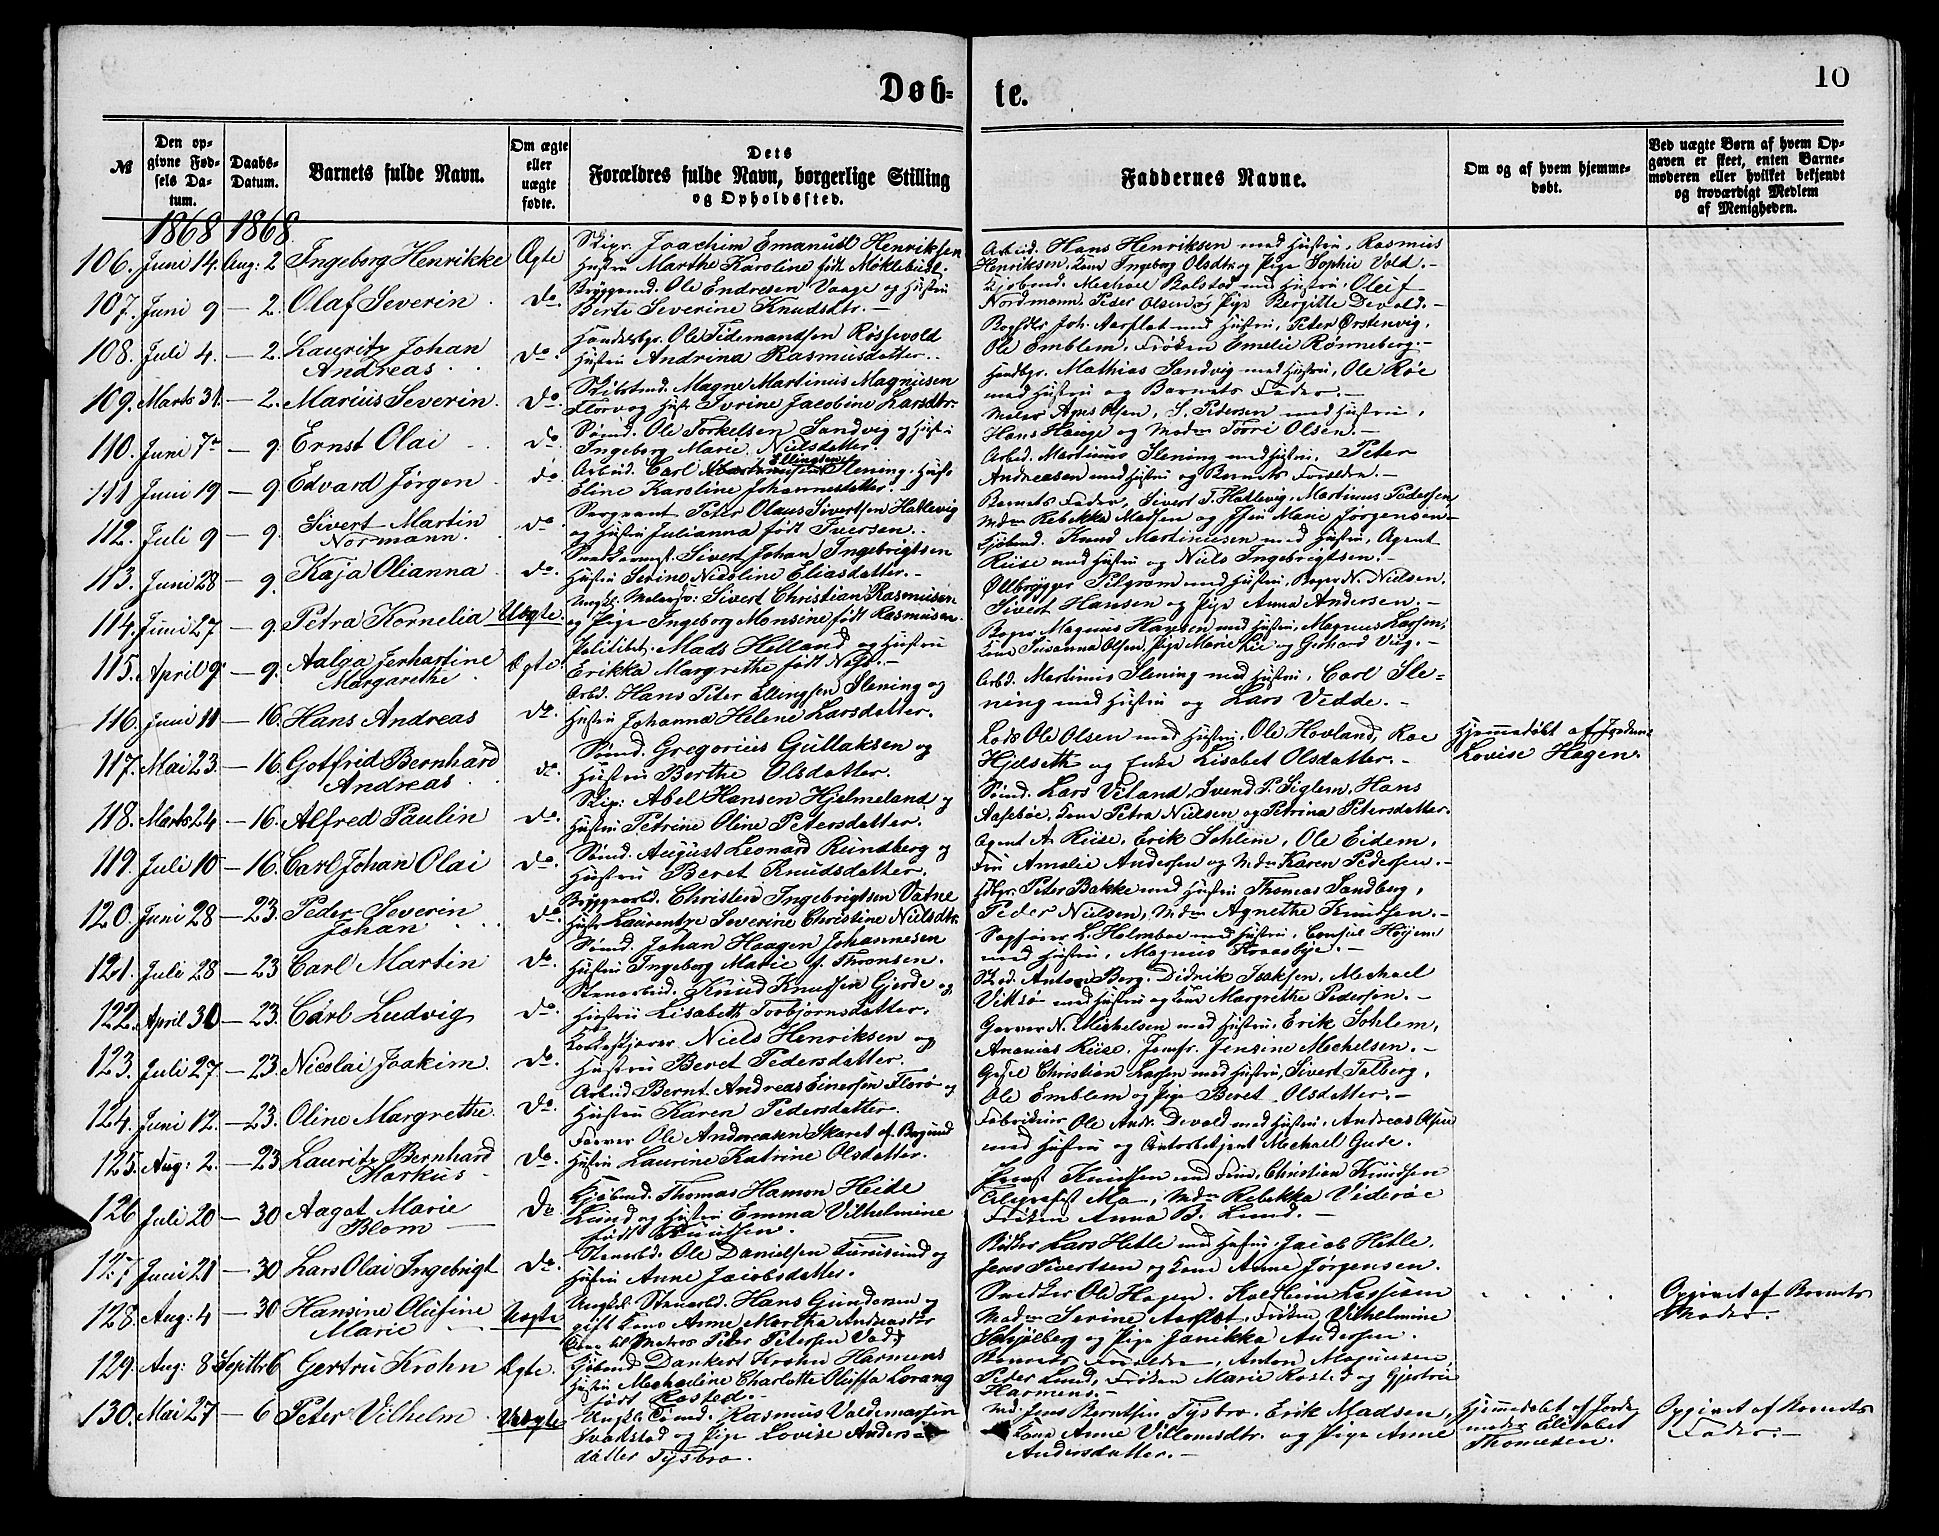 Døb=
te.
10
№
Den op-
givne Fød-
sels Da-
tum.
Daabs-
Datum.
Barnets fulde Navn.
Om ægte
eller
uægte
fødte.
Dets
Forældres fulde Navn, borgerlige Stilling
og Opholdssted.
Faddernes Navne.
Om og af hvem hjemme-
døbt.
Ved uægte Børn af hvem Op-
gaven er skeet, enten Barne-
moderen eller hvilket bekjendt
og troværdigt Medlem
af Menigheden.
1868 1868
106. Juni 14. Aug: 2 Ingeborg Henrikke Ægte
Skipr. Joachim Emanuel Henriksen
Hustru Marthe Karoline født Møklebust.
Arbeid. Hans Henriksen med Hustru, Rasmus
Henriksen, Kone Ingeborg Olsdtr og Pige Sophie Vold.-
107. Juni 9 - 2. Olaf Severin Do
Bryggemd. Ole Endresen Vaage og Hustru
Berte Severine Knudsdtr. -
Kjøbmd. Mechael Bolstad med Hustru, Oleif
Nordmann. Peder Olsen og Pige Bergitte Devold.-
108. Juli 4. - 2. Lauritz Johan
Andreas Do
Handelsbgr. Ole Tidemandsen Røssevold
Hustru Andrina Rasmusdatter.
Bogholdr Joh. Aarflot med Hustru, Peter Ørstenvig,
Ole Emblem, Frøken Emelie Rønneberg.-
109. Marts 31. - 2. Marius Severin. Do
Skibstmd. Magne Martinus Magnusen
Florvog Hust. Ivrine Jacobine Larsdtr.
Handbgr. Mathias Sandvig med Hustru, Ole Røe
med Hustru og Barnets Fader. -
110. Juni 7de - 9. Ernst Olai Do
Sømd. Ole Torkelsen Sandvig og Hustru
Ingeborg Marie Nielsdatter.
Maler Olsen, S. Pedersen med Hustru,
Hans Hauge og Madm Olsen.-
111 Juni 19 - 9. Edvard Jørgen do
Arbeid. Carl Ellingsen Slening. Hust.
Eline Karoline Johannesdatter.
Arbeid. Martinus Slening med Hustru, Peter
Andreasen med Hustru og Barnets Forældre. -
112. Juli 9 - 9. Sivert Martin
Normann. do
Sergeant Peter Olaus Sivertsen Hatlevig
og Hustru Julianna født Iversen.
Barnets Fader, Sivert T. Hatlevig, Martinus Pedersen,
Mdm Rebekka Madsen og Marie Jørgensen-
113. Juni 28 - 9. Kaja Olianna do.
Sivert Johan Ingebrigtsen
Hustru Serine Nicoline Eliasdatter.-
Kjøbmd. Knud Martinusen med Hustru, Agent
Riise med Hustru og Niels Ingebrigtsen.-
114. Juni 27 - 9. Petra Kornelia Uægte.
Ungkl. Malersv: Sivert Christian Rasmusen
og Pige Ingeborg Monsine født Rasmusen.
Ølbrygger Pilgrom med Hustru, Bager N. Nielsen.
Sivert Hansen og Pige Anna Andersen. -
115. April 9. - 9. Aalga Jerhartine
Margarethe Ægte.
Politibet. Mads Helland og Hustru
Erikka Margrethe født
Bager Magnus Hansen med Hustru, Magnus Larsen,
Kone Susanna Olsen, Pige Marie Lie og Gerhard Vig.-
116. Juni 11 - 16. Hans Andreas do.
Arbd. Hans Peter Ellingsen Slening og
Hustru Johanna Helene Larsdatter.
Arbd. Martinus Slening med Hustru. Carl Sle-
ning med Hustru og Lars Vedde. -
117. Mai 23. - 16. Gotfrid Bernhard
Andreas do
Sømd. Gregorius Gullaksen og
Hustru Berthe Olsdatter.
Lods Ole Olsen med Hustru, Ole Hovland, Roe
Hjelseth og Enke Lisabet Olsdatter. -
Hjemmedøbt af
Lovise Hagen.
118. Marts 24 - 16. Alfred Paulin do.
Skip: Abel Hansen Hjelmeland og
Hustru Petrine Oline Petersdatter.
Sømd. Lars Viland, Svend P. Siglem, Hans
Aasebøe, Kone Petra Nielsen og Petrina Petersdatter.
119. Juli 10 - 16. Carl Johan Olai Do.
Sømd. August Leonard Rundberg og
Hustru Beret Knudsdatter.
Agent A. Riise, Erik Sohlem, Ole Eidem,
Fru Amalie Andersen og Mdm Karen Pedersen.-
120. Juni 28 - 23. Peder Severin
Johan Do.
Christen Ingebrigtsen Vatne
Hust. Laurentze Severine Christine Nielsdtr.
Hdbgr. Peter Bakke med Hustru Thomas Sandberg,
Peder Nielsen, Mdm Agnethe Knudsen.-
121. Juli 28 - 23 Carl Martin Do.
Sømd. Johan Haagen Johannesen
Hustru Ingeborg Marie f. Thronsen.
Sagfører L. Holmboe med Hustru, Consul Høyem
med Hustru, Magnus
122. April 30 - 23. Carl Ludvig Do.
Stenarbeid. Knud Knudsen Gjerde og
Hustru Lisabeth Torbjørnsdatter.
Anton Berg. Didrik Isaksen, Mechael
Vitsø med Hustru og Kone Margrethe Pedersen.-
123. Juli 27. - 23. Nicolai Joakim. Do.
Niels Henriksen og
Hustru Beret Pedersdatter.
Garver N. Michelsen med Hustru, Erik Sohlem,
Ananias Riise, Jomfr. Jensine Mechelsen.-
124. Juni 12. - 23. Oline Margrethe Do.
Arbeid Bernt Andreas Einersen Florø og
Hustru Karen Pedersdatter.
Gesel Christian Larsen med Hustru, Sivert Talberg,
Ole Emblem og Pige Beret Olsdatter.-
125. Aug: 2. - 23 Lauritz Bernhard
Markus Do.
Farver Ole Andreasen Skaret af Borgund
Hustru Laurine Katrine Olsdatter.
Fabrikeier Ole Andr. Devold med Hustru, Andreas Olsen
med Hustru og Mechael Gude.
126 Juli 20 - 30 Aagot Marie
Blom Do
Kjøbmd. Thomas Hamon Heide
Lund og Hustru Emma Vilhelmine
født Knudsen.
Provst Knudsen med Frue, Christian Knudsen
Telegrafist Mo, Mdm Rebekka Viderøe
Frøken Anna B. Lund. -
127. Juni 21 - 30 Lars Olai Ingebrigt Do.
Stenarbd. Ole Danielsen og
Hustru Anne Jacobsdatter.
Lars Hetle med Hustru. Jacob Hetle.
Jens Sivertsen og Kone Anne Jørgensen.
128. Aug: 4 - 30 Hansine Olufine
Marie Uægte
Ungkl. Stenarbd. Hans Gundersen og
gift Kone Anne Martha Andreasdtr
Peter Petersen Vad
Snedker Ole Hagen.
Madm Serine Aarflot, Frøken Vilhelmine
og Pige Janikka Andersen.
Opgivet af Barnets
Moder.
129. Aug: 8 Septbr 6 Gertru Krohn Ægte.
Kjøbmd Dankert Krohn Harmens
Hustru Mechaeline Charlotte Lorang
født Rosted. -
Barnets Forældre, Anton Magnusen,
Peder Lund, Frøken Marie Rosted og Gjertru
Harmens.-
130. Mai 27 - 6 Peter Vilhelm Uægte
Ungkl. Tømd. Rasmus Valdemarsen
og Pige Lovise Anders-
datter Tysbro.
Md. Jens Berntsen Tysbro, Erik Madsen,
Kone Anne Villomsdtr. og Pige Anne
Andersdatter. -
Hjemmedøbt af Jorde-
moder Elisabet
Thomesen.
Opgivet af Barnets
Fader. -